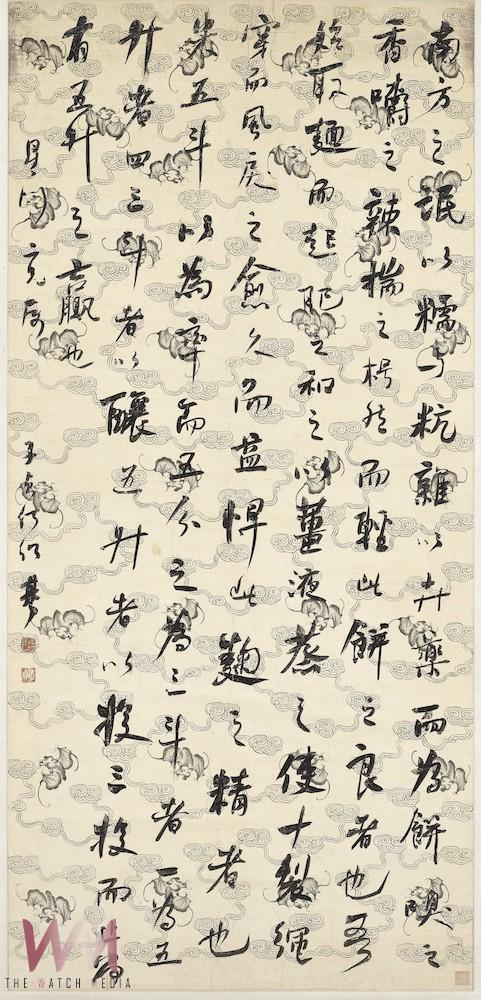 南方之氓以糯与秔雜以卉藥而為餅嗅之
香嚼之辣揣之枵然而輕此餅之良者也吾
始取麵而起肥之和之以薑液蒸之使十裂繩
穿而風戾之愈久而益悍此麴之精者也
米五斗以為率而五分之為三斗者一為五
升者四三斗者以釀五升者以投三投而止尚
有五升之贏也
子貞何紹基
THE WATCH MEDIA